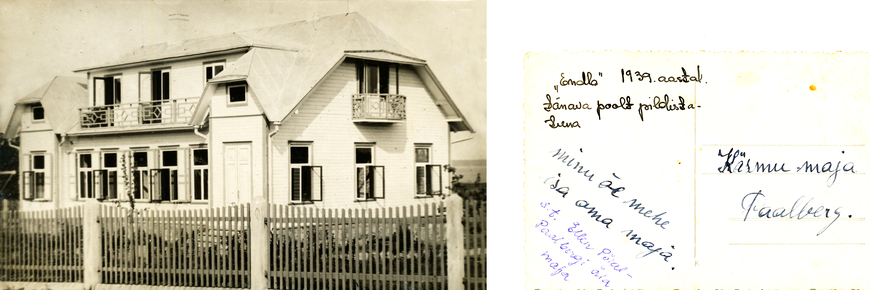 „Endla" 1939. aastal.
tänava poolt pildista-
tuna
minu õe mehe
isa oma maja.
s.t. Ellen Pöial-
Paalbergi äia
maja
Käsmu maja
Paalberg.